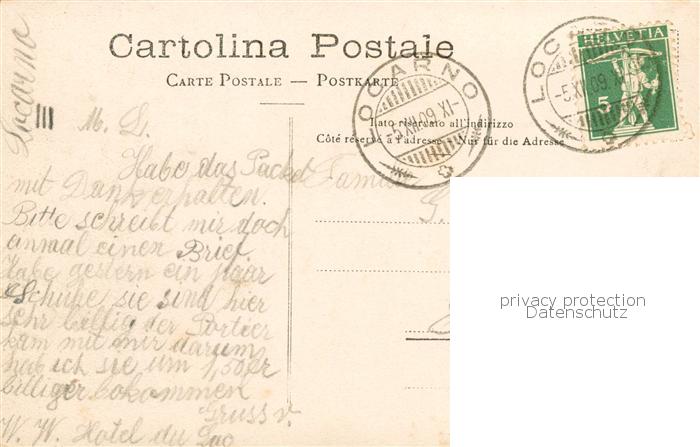 Cartolina Postale
CARTE POSTALE — POSTKARTE
Lato riservato all'Indirizzo
Côté réservé à l'adresse - Nur für die Adresse
LOCARNO
-5.XII.09.XI-
HELVETIA
5
LOC
-5.XII.09.
Locarno
III
M. L.
Habe das Packet
mit Dank erhalten.
Bitte schreibt mir doch
anmal einen Brief
habe gestern ein paar
Schuhe sie sind hier
sehr billig der Portier
kam mit mir darum
hab ich sie um 1,50 fr
billiger bekommen
Gruss v.
W. W. Hotel du Lac
Familie
G.
privacy protection
Datenschutz